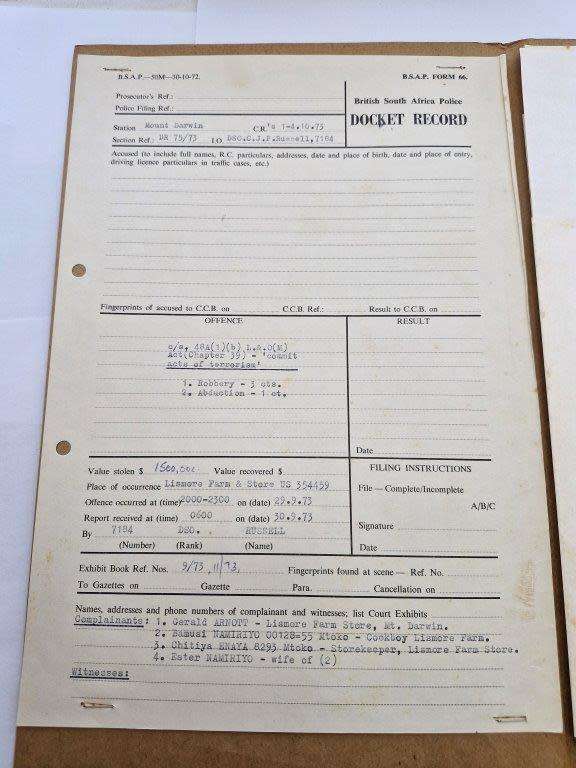 B.S.A.P.—50M—30-10-72.
B.S.A.P. FORM 66.
Prosecutor's Ref.:
Police Filing Ref.:
Station Mount Darwin C.R.'s 1-4.10.73
Section Ref. DR 75/73 I O DSO.C.J.P.Russell,7184
British South Africa Police
DOCKET RECORD
Accused (to include full names, R.C. particulars, addresses, date and place of birth, date and place of entry,
driving licence particulars in traffic cases, etc.)
Fingerprints of accused to C.C.B. on C.C.B. Ref.: Result to C.C.B. on
OFFENCE
RESULT
c/s, 48A(1)(b) L.& O(M)
Act(Chapter 39) - 'commit
acts of terrorism'
1. Robbery - 3 cts.
2. Abduction - 1 ct.
Date
Value stolen $ Value recovered $
Place of occurrence Lismore Farm & Store US 354459
Offence occurred at (time) 2000-2300 on (date) 29.9.73
Report received at (time) 0600 on (date) 30.9.73
By 7184 DSO. RUSSELL
(Number) (Rank) (Name)
FILING INSTRUCTIONS
File — Complete/Incomplete
A/B/C
Signature
Date
Exhibit Book Ref. Nos. 9/73, 11/73, Fingerprints found at scene — Ref. No.
To Gazettes on Gazette Para. Cancellation on
Names, addresses and phone numbers of complainant and witnesses; list Court Exhibits
Complainants: 1. Gerald ARNOTT - Lismore Farm Store, Mt. Darwin.
2. Bamusi NAMIRIYO 00128=55 Mtoko - Cookboy Lismore Farm.
3. Chitiya ENAYA 8293 Mtoko - Storekeeper, Lismore Farm Store.
4. Ester NAMIRIYO - wife of (2)
Witnesses: